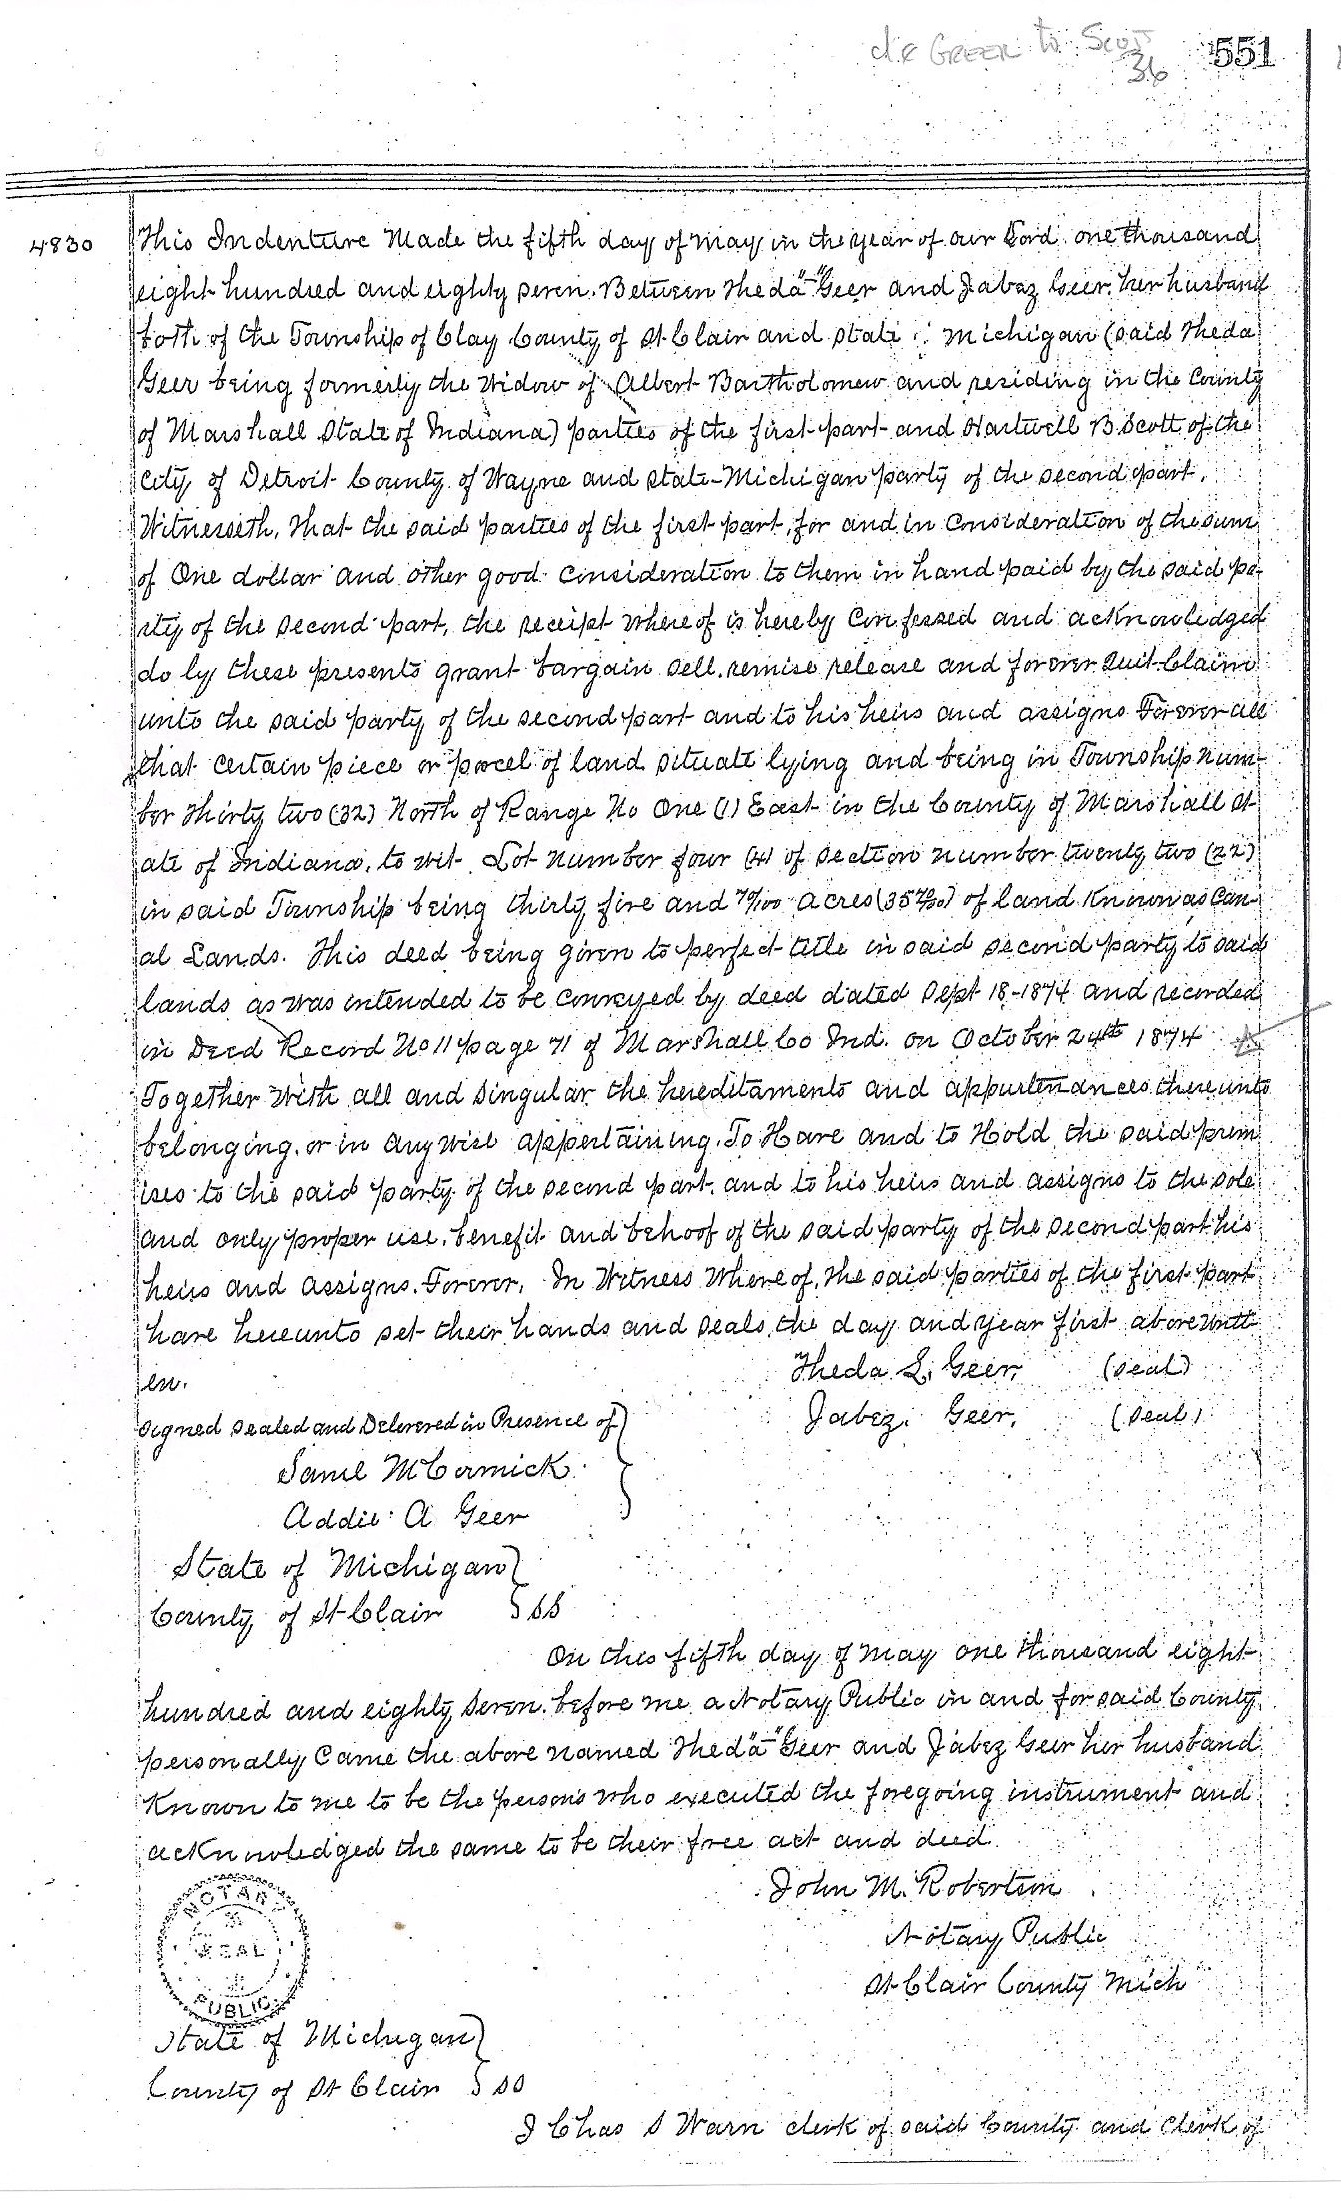 de GREER to Scott
36
551
4830
This Indenture Made the fifth day of May in the year of our Lord one thousand
eight hundred and eighty seven. Between Theda "–" Geer and Jabez Geer, her husband
both of the Township of Clay County of St Clair and State : Michigan (said Theda
Geer being formerly the Widow of Albert Bartholomew and residing in the County
of Marshall State of Indiana) parties of the first part and Hartwell B. Scott of the
City of Detroit County of Wayne and State–Michigan party of the second part.
Witnesseth, That the said parties of the first part, for and in Consideration of the sum
of One dollar and other good Consideration to them in hand paid by the said pa-
rty of the second part, the receipt where of is hereby Confessed and acknowledged
do by these presents grant bargain sell, remise release and forever Quit-Claim
unto the said party of the second part and to his heirs and assigns Forever all
that certain piece or parcel of land situate lying and being in Township Num-
ber Thirty two (32) North of Range No One (1) East in the County of Marshall St-
ate of Indiana, to wit Lot number four (4) of Section number twenty two (22)
in said Township being thirty five and 70/100 acres (35 70/100) of land Known as Can-
al Lands. This deed being given to perfect title in said second party to said
lands as was intended to be conveyed by deed dated Sept 18–1874 and recorded
in Deed Record No 11 page 71 of Marshall Co Ind. on October 24th 1874
Together With all and singular the hereditaments and appurtenances thereunto
belonging, or in any wise appertaining, To Have and to Hold the said prem
ises to the said party of the second part, and to his heirs and assigns to the sole
and only proper use, benefit and behoof of the said party of the second part his
heirs and assigns. Forever. In Witness Where of, The said parties of the first part
have hereunto set their hands and seals the day and year first above writt
en.
Theda L. Geer, (Seal)
Jabez. Geer, (Seal)
Signed Sealed and Delivered in Presence of }
Saml McCormick
Addie A Geer
State of Michigan }
County of St Clair } SS
On this fifth day of May one thousand eight
hundred and eighty seven. before me a Notary Public in and for said County
personally came the above named Theda "–" Geer and Jabez Geer her husband
Known to me to be the persons who executed the foregoing instrument and
acknowledged the same to be their free act and deed.
John M. Robertson
Notary Public
St Clair County Mich
NOTARY
SEAL
PUBLIC
State of Michigan }
County of St Clair } SS
I Chas S Warn clerk of said County and Clerk of